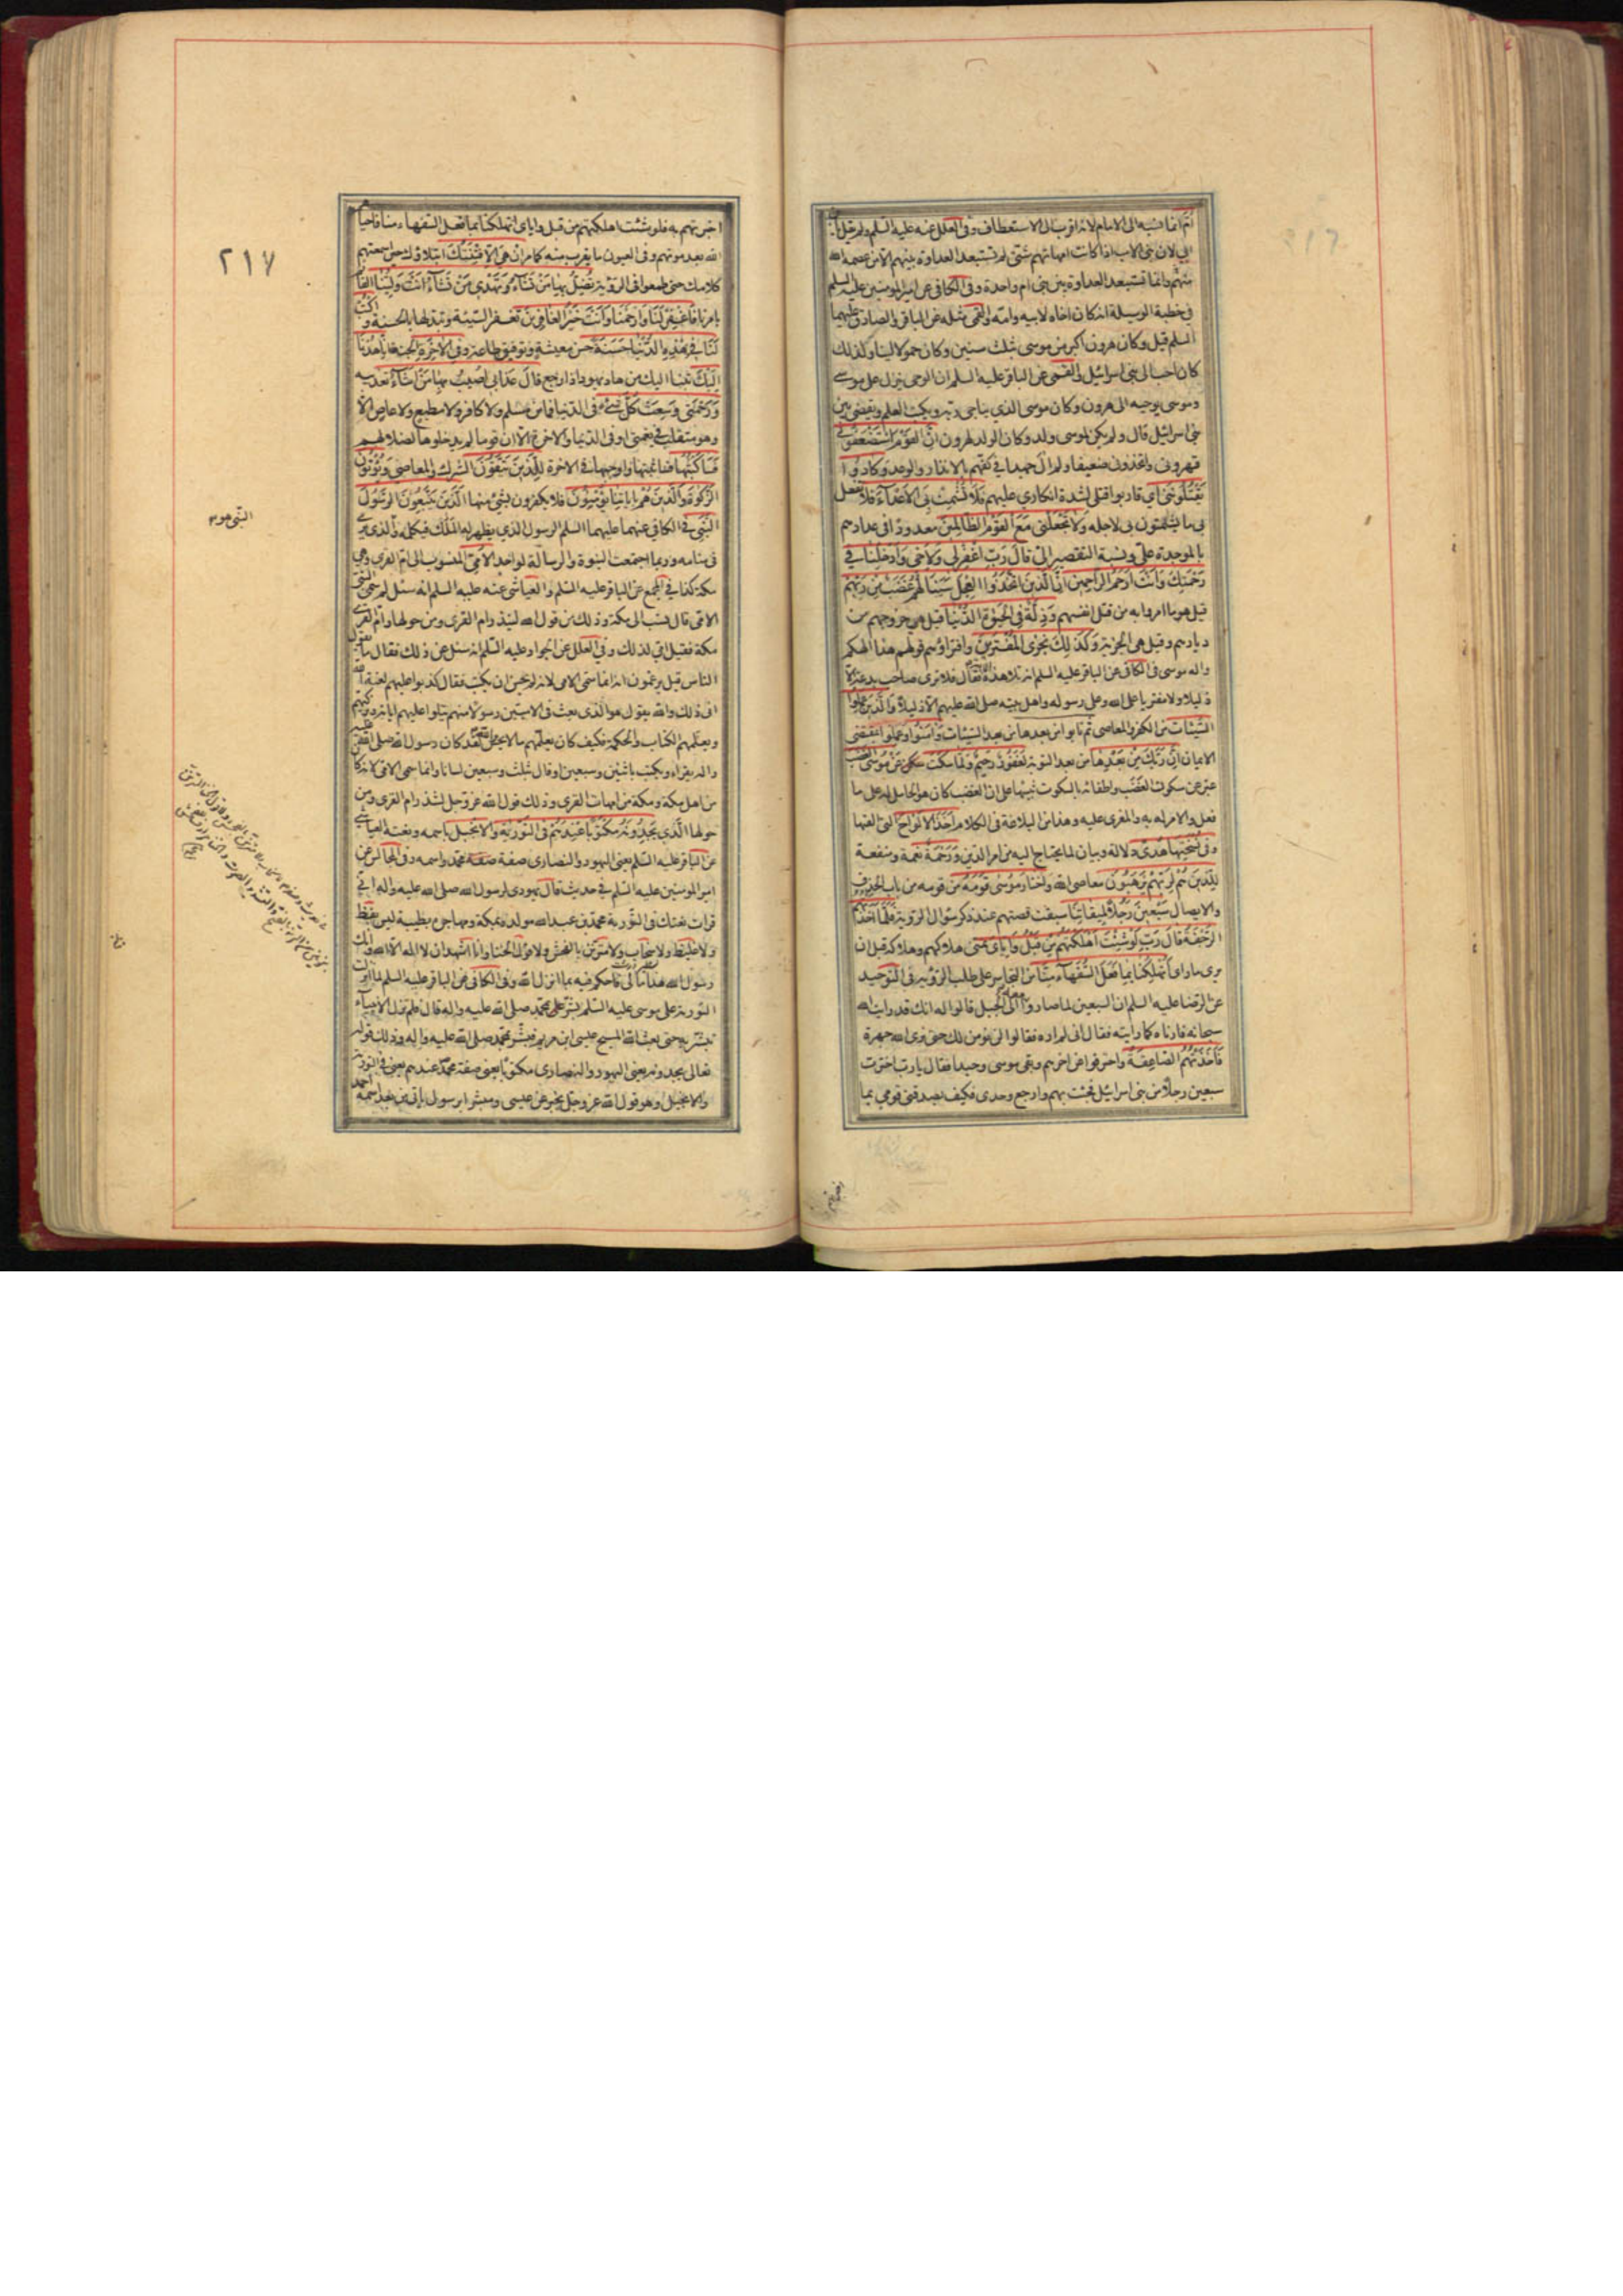 امّ انما نسبه الى الام لانه اقرب الى الاستعطاف وفى العلل عنه عليه السلم ولم يقل يابن
ابى لان بنى الاب اذا كانت امهاتهم شتى لم تستبعد العداوة بينهم الا من عصمه الله
منهم وانما تستبعد العداوة بين بنى ام واحدة وفى الكافى عن امير المومنين عليه السلم
فى خطبة الوسيلة انه كان اخاه لابيه وامه والقمى مثله عن الباقر والصادق عليهما
السلم قيل وكان هرون اكبر من موسى بثلث سنين وكان حمولا لينا ولذلك
كان احب الى بنى اسرائيل والقمى عن الباقر عليه السلم ان الوحى ينزل على موسى
وموسى يوحيه الى هرون وكان موسى الذى يناجى ربه ويكتب العلم ويقضى بين
بنى اسرائيل قال ولم يكن لموسى ولد وكان الولد لهرون انّ القَوْمَ اسْتَضْعَفُونى
قهرونى واتخذونى ضعيفا ولم ال جهدا فى كفهم بالانذار والوعد وَكادوُا
يَقْتُلُونَنى اى قاربوا قتلى لشدة انكارى عليهم فَلا تُشْمِتْ بِىَ الاَعْدآءَ فلا تفعل
بى ما يشمتون بى لاجله وَلا تَجْعَلْنى مَعَ القَوْمِ الظّالِمينَ معدودا فى عدادهم
بالموجدة علىّ ونسبة التقصير الىّ قالَ رَبِّ اغْفِرْلى وَلاَخى وَاَدْخِلْنا فى
رَحْمَتِكَ وَاَنْتَ اَرْحَمُ الرّاحِمينَ اِنَّ الَّذينَ اتَّخَذُوا العِجْلَ سَيَنالُهُمْ غَضَبٌ مِنْ رَبِّهِمْ
قيل هو ما امروا به من قتل انفسهم وَذِلَّةٌ فِى الحَيوةِ الدُّنْيا قيل هى خروجهم من
ديارهم وقيل هى الجزية وَكَذلِكَ نَجْزِى المُفْتَرينَ وافتراؤهم قولهم هذا الهكم
واله موسى فى الكافى عن الباقر عليه السلم انه تلا هذه الاية فقال فلا ترى صاحب بدعة الا
ذليلا ولا مفتريا على الله وعلى رسوله واهل بيته صلى الله عليهم الا ذليلا وَالَّذينَ عَمِلُوا
السَّيِّئاتِ من الكفر والمعاصى ثم تابوا من بعدها من بعد السيئات وَآمَنُوا وعملوا بمقتضى
الايمان اِنَّ رَبَّكَ مِنْ بَعْدِها من بعد التوبة لَغَفُورٌ رَحيمٌ وَلَمّا سَكَتَ سكن عَنْ مُوسَى الغَضَبُ
عبّر عن سكون الغضب واطفائه بالسكوت تنبيها على ان الغضب كان هو الحامل له على ما
فعل والامر له به والمغرى عليه وهذا من البلاغة فى الكلام اَخَذَ الاَلْواحَ التى القاها
وَفى نُسْخَتِها هُدىً دلالة وبيان لما يحتاج اليه من امر الدين وَرَحْمَةٌ نعمة ومنفعة
لِلَّذينَ هُمْ لِرَبِّهِمْ يَرْهَبُونَ معاصى الله وَاخْتارَ مُوسى قَوْمَهُ من قومه من باب الحذف
والايصال سَبْعينَ رَجُلاً لِميقاتِنا سبقت قصتهم عند ذكر سؤال الرؤية فَلَمّا اَخَذَتْهُمُ
الرَّجْفَةُ قالَ رَبِّ لَوْ شِئْتَ اَهْلَكْتَهُمْ مِنْ قَبْلُ وَاِيّاىَ تمنى هلاكهم وهلاكه قبل ان
يرى ما راى اَتُهْلِكُنا بِما فَعَلَ السُّفَهآءُ مِنّا من التجاسر على طلب الرؤية فى التوحيد
عن الرضا عليه السلم ان السبعين لما صاروا معه الى الجبل قالوا له انك قد رايت الله
سبحانه فارناه كما رايته فقال انى لم اره فقالوا لن نؤمن لك حتى نرى الله جهرة
فَاَخَذَتْهُمُ الصّاعِقَةُ واحترقوا عن اخرهم وبقى موسى وحيدا فقال يا رب اخترت
سبعين رجلا من بنى اسرائيل فجئت بهم وارجع وحدى فكيف يصدقنى قومى بما
٢١٧
اخبرتهم به فلو شئت اهلكتهم من قبل واياى اتهلكنا بما فعل السفهاء منا فاحيا
الله بعد موتهم وفى العيون ما يقرب منه كما مر اِنْ هِىَ اِلاّ فِتْنَتُكَ ابتلاؤك حين اسمعتهم
كلامك حتى طمعوا فى الرؤية تُضِلُّ بِها مَنْ تَشآءُ وَتَهْدى مَنْ تَشآءُ اَنْتَ وَلِيُّنا القائم
بامرنا فَاغْفِرْ لَنا وَارْحَمْنا وَاَنْتَ خَيْرُ الغافِرينَ تغفر السيئة وتبدلها بالحسنة وَاكْتُبْ
لَنا فى هذِهِ الدُّنْيا حَسَنَةً حسن معيشة وتوفيق طاعة وَفِى الآخِرَةِ الجنة اِنّا هُدْنا
اِلَيْكَ تبنا اليك من هاد يهود اذا رجع قالَ عَذابى اُصيبُ بِه مَنْ اَشآءُ تعذيبه
وَرَحْمَتى وَسِعَتْ كُلَّ شَىْءٍ فى الدنيا فما من مسلم ولا كافر ولا مطيع ولا عاص الا
وهو متقلب فى نعمتى او فى الدنيا والاخرة الا ان قوما لم يدخلوها لضلالهم
فَسَاَكْتُبُها فساثبتها واوجبها فى الاخرة لِلَّذينَ يَتَّقُونَ الشرك والمعاصى وَيُؤْتُونَ
الزَّكوةَ وَالَّذينَ هُمْ بِآياتِنا يُؤْمِنُونَ فلا يكفرون بشىء منها اَلَّذينَ يَتَّبِعُونَ الرَّسُولَ
النَّبِىَّ فى الكافى عنهما عليهما السلم الرسول الذى يظهر له الملك فيكلمه والذى يرى
فى منامه وربما اجتمعت النبوة والرسالة لواحد الاُمِّىَّ المنسوب الى ام القرى وهى
مكة كذا فى المجمع عن الباقر عليه السلم والعياشى عنه عليه السلم انه سئل لم سمى النبى
الامى قال نسب الى مكة وذلك من قول الله لتنذر ام القرى ومن حولها وام القرى
مكة فقيل امى لذلك وفى العلل عن الجواد عليه السلم انه سئل عن ذلك فقال ما يقول
الناس قيل يزعمون انه انما سمى الامى لانه لم يحسن ان يكتب فقال كذبوا عليهم لعنة الله
انى ذلك والله يقول هو الذى بعث فى الاميين رسولا منهم يتلوا عليهم اياته ويزكيهم
ويعلمهم الكتاب والحكمة فكيف كان يعلمهم ما لا يحسن والله لقد كان رسول الله صلى الله عليه
واله يقراء ويكتب باثنين وسبعين او قال بثلث وسبعين لسانا وانما سمى الامى لانه كان
من اهل مكة ومكة من امهات القرى وذلك قول الله عز وجل لتنذر ام القرى ومن
حولها الَّذى يَجِدُونَهُ مَكْتُوبًا عِنْدَهُمْ فِى التَّوْريةِ وَالاِنْجيلِ باسمه ونعته العياشى
عن الباقر عليه السلم يعنى اليهود والنصارى صفة محمد واسمه وفى المجالس عن
امير المومنين عليه السلم فى حديث قال يهودى لرسول الله صلى الله عليه واله انى
قرات نعتك فى التورية محمد بن عبد الله مولده بمكة ومهاجره بطيبة ليس بفظ
ولا غليظ ولا سخاب ولا متزين بالفحش ولا قول الخنا وانا اشهد ان لا اله الا الله وانك
رسول الله هذا مالى فاحكم فيه بما انزل الله وفى الكافى عن الباقر عليه السلم لما انزلت
التورية على موسى عليه السلم بشر بمحمد صلى الله عليه واله قال فلم تزل الانبياء
تبشر به حتى بعث الله المسيح عيسى ابن مريم فبشر بمحمد صلى الله عليه واله وذلك قوله
تعالى يجدونه يعنى اليهود والنصارى مكتوبا يعنى صفة محمد عندهم يعنى فى التورية
والانجيل وهو قول الله عز وجل يخبر عن عيسى ومبشرا برسول ياتى من بعدى اسمه احمد
النبى هو